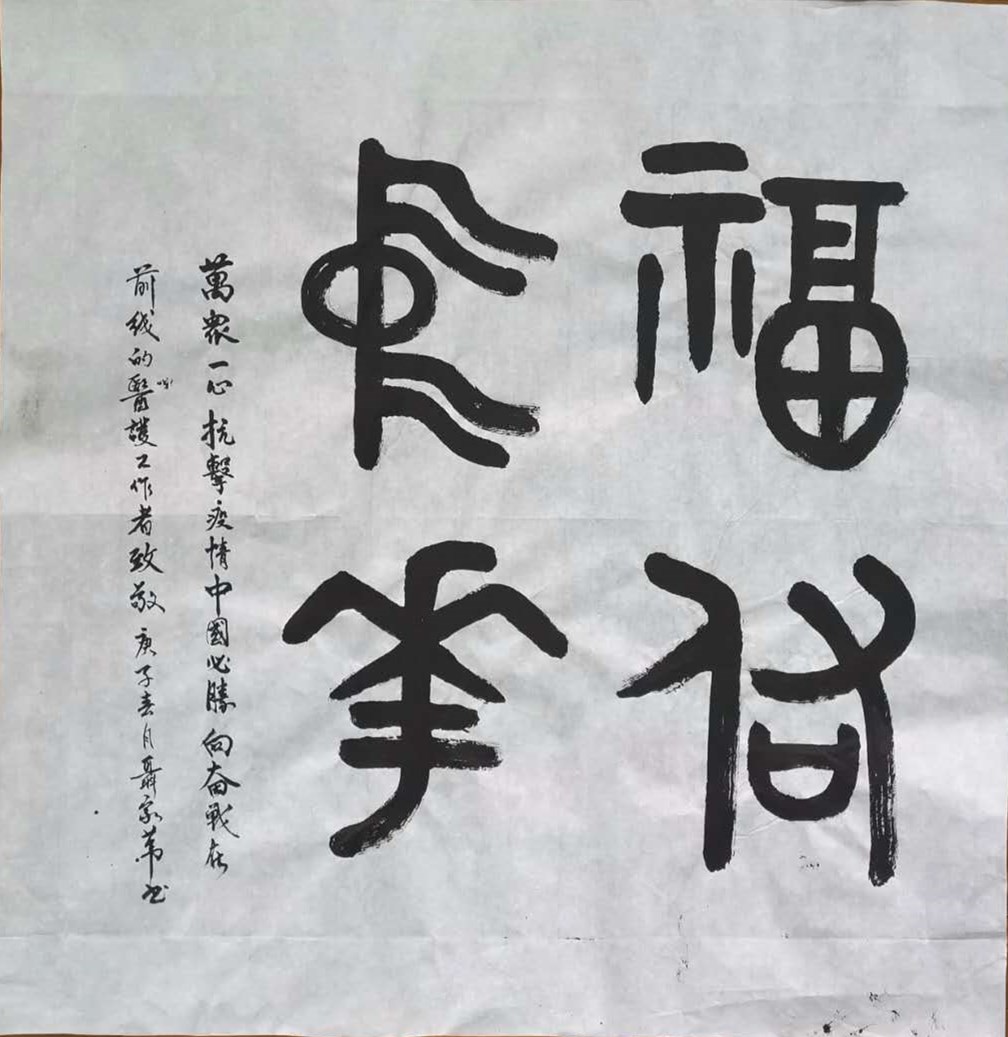 福佑
中華
萬衆一心抗擊疫情中國必勝向奋戰在
前线的醫護工作者致敬庚子春月聶家苐书